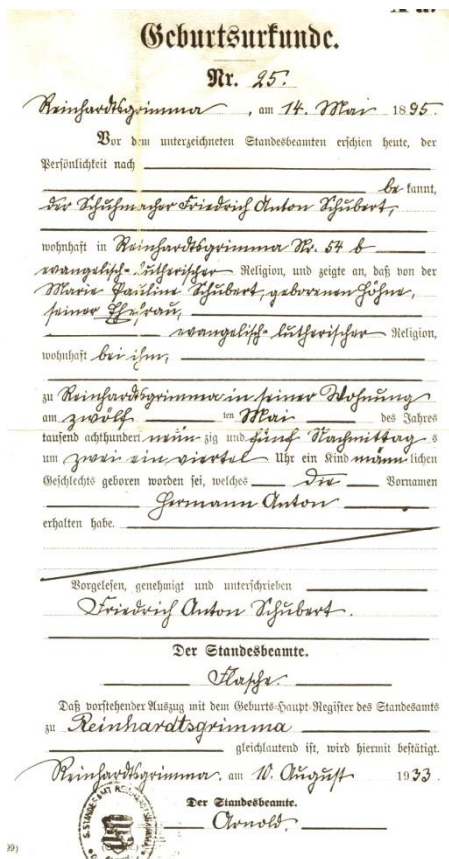 Geburtsurkunde.
Nr. 25.
Reinhardtsgrimma, am 14. Mai 1895.
Vor dem unterzeichneten Standesbeamten erschien heute, der
Persönlichkeit nach
be kannt,
der Schuhmacher Friedrich Anton Schubert,
wohnhaft in Reinhardtsgrimma Nr. 54 b
evangelisch-lutherischer Religion, und zeigte an, daß von der
Marie Pauline Schubert, geborenen Höhne,
seiner Ehefrau,
evangelisch-lutherischer Religion,
wohnhaft bei ihm,
zu Reinhardtsgrimma in seiner Wohnung
am zwölf ten Mai des Jahres
tausend achthundert neun zig und fünf Nachmittag s
um zwei ein viertel Uhr ein Kind männ lichen
Geschlechts geboren worden sei, welches die Vornamen
Hermann Anton
erhalten habe.
Vorgelesen, genehmigt und unterschrieben
Friedrich Anton Schubert.
Der Standesbeamte.
Flasche.
Daß vorstehender Auszug mit dem Geburts-Haupt-Register des Standesamts
zu Reinhardtsgrimma
gleichlautend ist, wird hiermit bestätigt.
Reinhardtsgrimma. am 10. August 1933.
Der Standesbeamte.
Arnold.